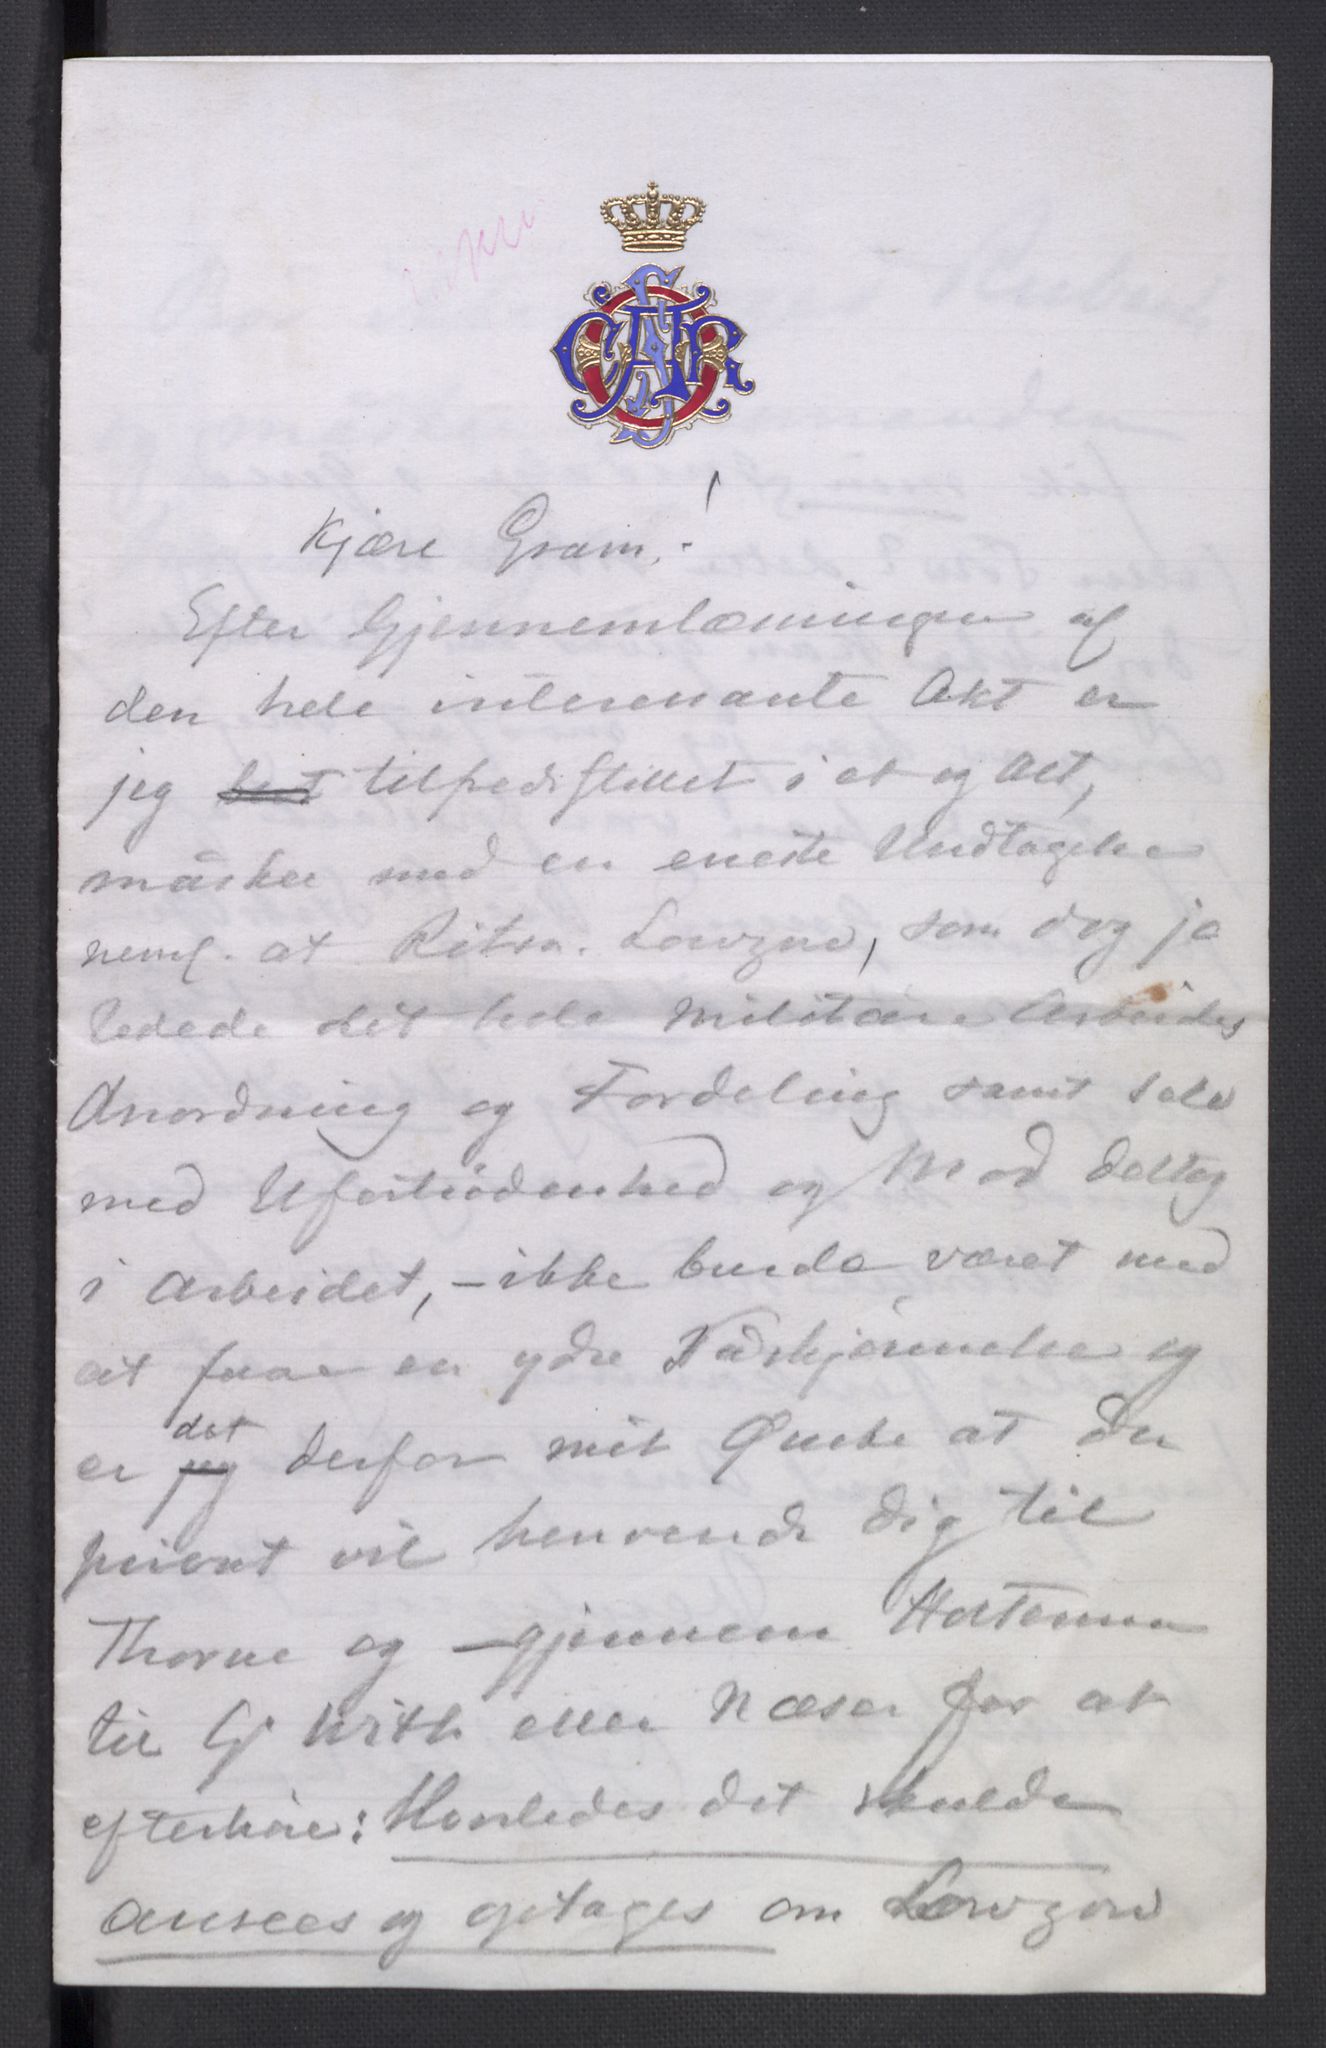 Kjære Gram!
Efter Gjennemlæsningen af
den hele interessante Akt er
jeg tilfredsstillet i et og Alt,
måskee med en eneste Undtagelse
neml. at Ritm. Lowzow, som dog jo
ledede det hele militære Arbeides
Anordning og Fordeling samt selv
med Ufortrødenhed og Mod deltog
i Arbeidet, – ikke burde været med
at faae en ydre Påskjønnelse og
er jeg det derfor mit Ønske at Du
privat vil henvende Dig til
Thorne og – gjennem Holtermann
til Gj With eller Næser for at
efterhøre: Hvorledes det skulde
ansees og optages om Lowzow